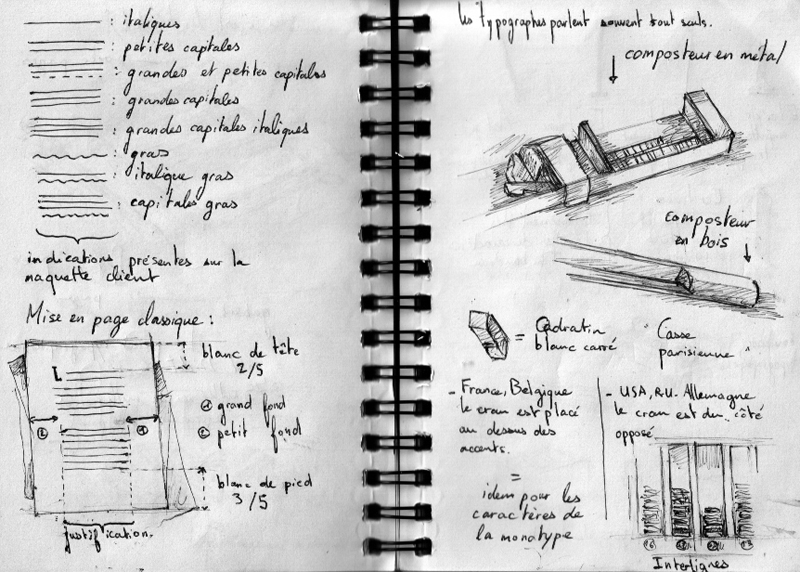 : italiques
: petites capitales
: grandes et petites capitales
: grandes capitales
: grandes capitales italiques
: gras
: italique gras
: capitales gras
indications présentes sur la
maquette client
Mise en page classique :
blanc de tête
2/5
grand fond
petit fond
blanc de pied
3/5
justification.
les typographes parlent souvent tout seuls.
composteur en métal
composteur
en bois
= Cadratin
blanc carré
"Casse
parisienne"
- France, Belgique
le cran est placé
au dessus des
accents.
=
idem pour les
caractères de
la monotype
- USA, R.U. Allemagne
le cran est du côté
opposé
Interlignes